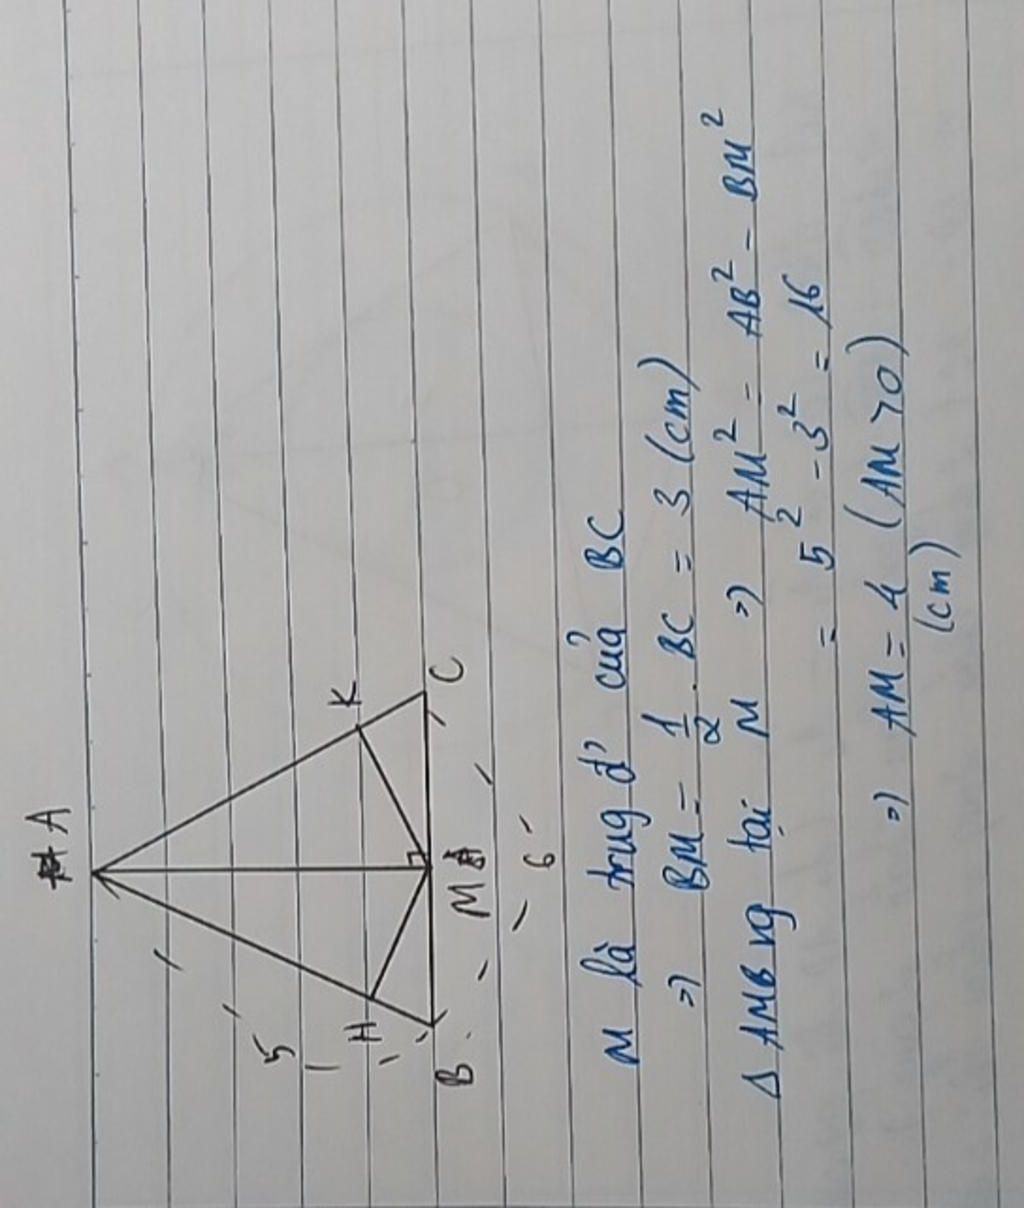 A
5
H
K
B
M
C
6
M là trug đ' của BC
=) BM = 1/2 . BC = 3 (cm)
Δ AMB vg tại M =) AM² = AB² - BM²
= 5² - 3² = 16
=) AM = 4 (AM > 0)
(cm)